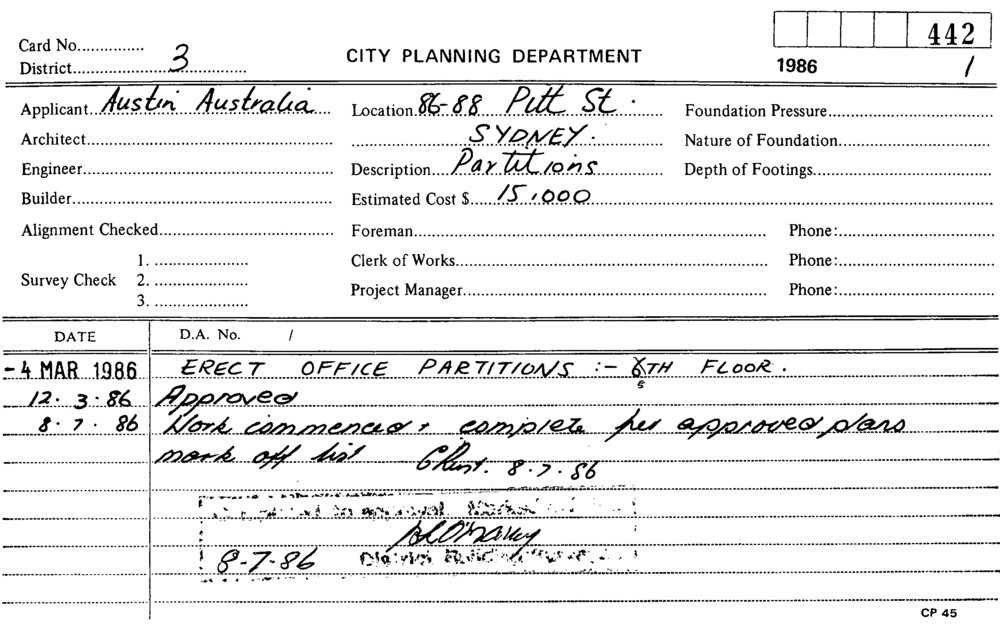 442
Card No...............
District 3
CITY PLANNING DEPARTMENT
1986 /
Applicant Austin Australia
Location 86-88 Pitt St.
Foundation Pressure
Architect
SYDNEY.
Nature of Foundation
Engineer
Description Partitions
Depth of Footings
Builder
Estimated Cost $ 15,000
Alignment Checked
Foreman
Phone:
Survey Check
1.
2.
3.
Clerk of Works
Phone:
Project Manager
Phone:
DATE
D.A. No. /
-4 MAR 1986 ERECT OFFICE PARTITIONS :- TH FLOOR.
12.3.86 Approved
8.7.86 Work commenced & complete per approved plans
mark off list 8.7.86
to approval
8-7-86 District Building
CP 45